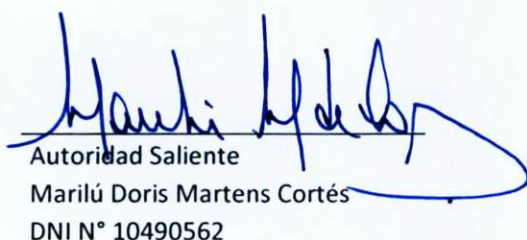 Autoridad Saliente
Marilú Doris Martens Cortés
DNI N° 10490562